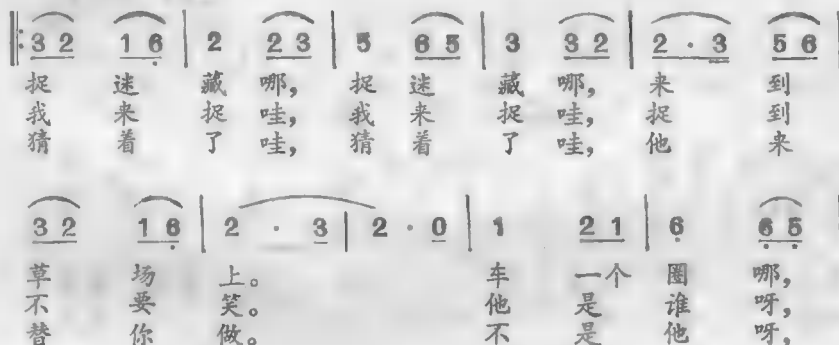 ‖: 3 2 1 6̣ | 2 2 3 | 5 6 5 | 3 3 2 | 2 · 3 5 6 |
捉 迷 藏 哪, 捉 迷 藏 哪, 来 到
我 来 捉 哇, 我 来 捉 哇, 捉 到
猜 着 了 哇, 猜 着 了 哇, 他 来
3 2 1 6̣ | 2 · 3 | 2 · 0 | 1 2 1 | 6̣ 6̣ 5̣
草 场 上。 车 一个 圈 哪,
不 要 笑。 他 是 谁 呀,
替 你 做。 不 是 他 呀,